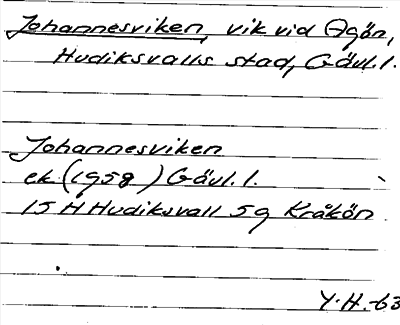 Johannesviken, vik vid Agön,
Hudiksvalls stad, Gävl.l.
Johannesviken
ek. (1958) Gävl.l.
15 H Hudiksvall 5g Kråkön
Y.H.-63